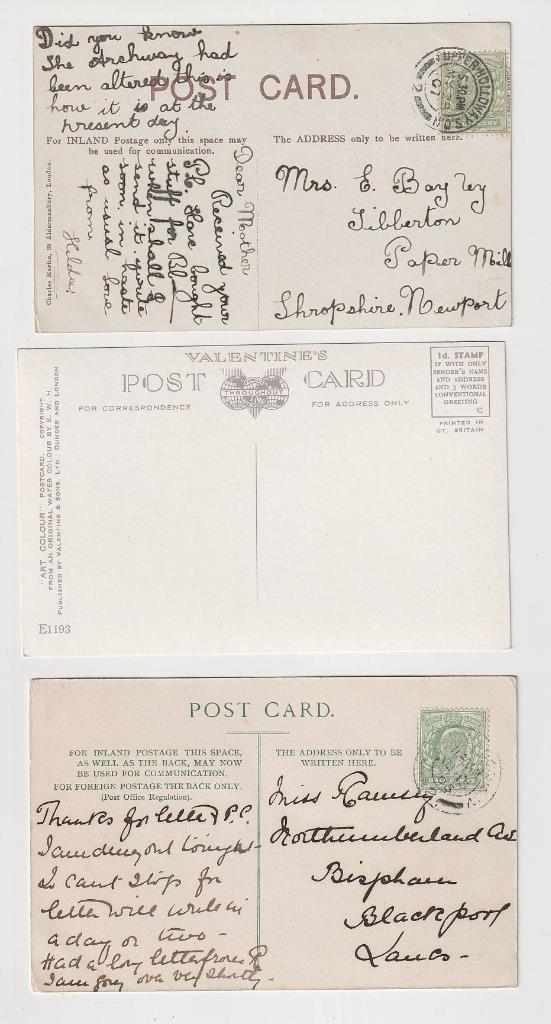 Did you know
The Archway had
been altered this is
how it is at the
present day.
POST CARD.
For INLAND Postage only this space may
be used for communication.
The ADDRESS only to be written here.
Charles Martin, 39 Aldermanbury, London.
Dear Mother
Received your
P.C. Have bought
stuff for
when shall I
send it write
soon in haste
as usual love
from
Hilda
Mrs. E. Bayley
Tibberton
Paper Mill
Shropshire. Newport
UPPER HOLLOWAY S.O. N
5.30 PM
2
VALENTINE'S
POST CARD
THROUGHOUT
FOR CORRESPONDENCE
FOR ADDRESS ONLY
1d. STAMP
IF WITH ONLY
SENDER'S NAME
AND ADDRESS
AND 5 WORDS
CONVENTIONAL
GREETING
C
PRINTED IN
GT. BRITAIN
"ART COLOUR" POSTCARD. COPYRIGHT.
FROM AN ORIGINAL WATER COLOUR BY E. W. H
PUBLISHED BY VALENTINE & SONS, LTD. DUNDEE AND LONDON
E1193
POST CARD.
FOR INLAND POSTAGE THIS SPACE,
AS WELL AS THE BACK, MAY NOW
BE USED FOR COMMUNICATION.
FOR FOREIGN POSTAGE THE BACK ONLY.
(Post Office Regulation).
THE ADDRESS ONLY TO BE
WRITTEN HERE.
Thanks for letter & P.C.
I am out tonight -
So cant stop for
letter will write in
a day or two -
Had a long letter from R
I am going over very shortly -
Miss Ramsey
Northumberland Av
Bispham
Blackpool
Lancs -